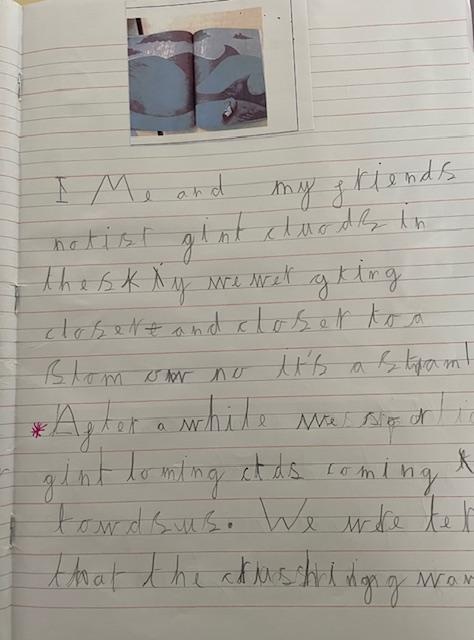 I Me and my friends
notist gint cluods in
the skiy we wer gting
closert and closer to a
stom ow no it's a stram!
*After a while we spotic
gint loming clds coming
towdsus. We were ter
that the crusshingg wav